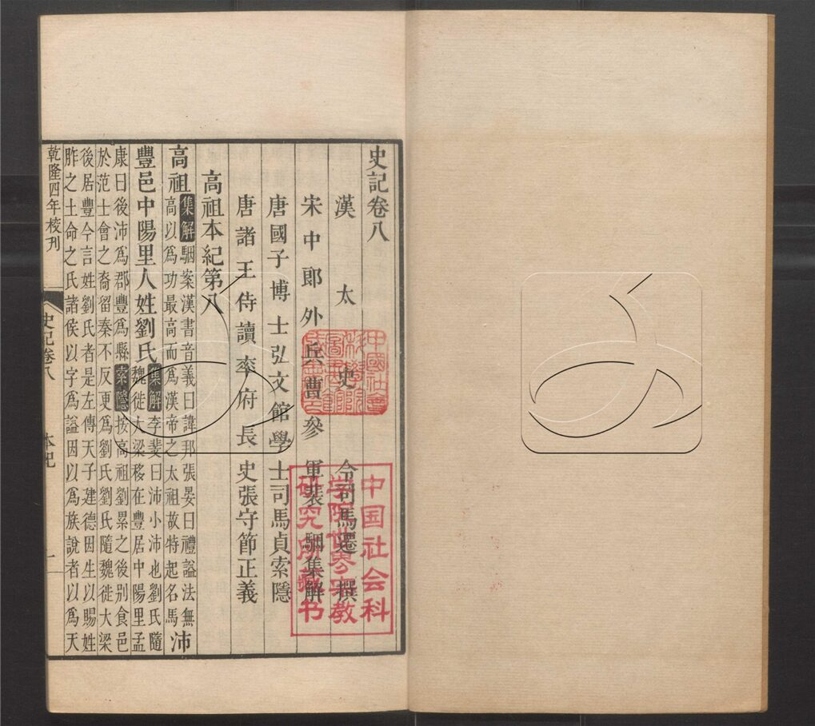 史記卷八
漢太史令司馬遷撰
宋中郎外兵曹參軍裴駰集解
唐國子博士弘文館學士司馬貞索隱
唐諸王侍讀率府長史張守節正義
高祖本紀第八
高祖集解駰案漢書音義曰諱邦張晏曰禮謚法無
高以爲功最高而爲漢帝之太祖故特起名焉沛
豐邑中陽里人姓劉氏集解李斐曰沛小沛也劉氏隨
魏徙大梁移在豐居中陽里孟
康曰後沛爲郡豐爲縣索隱按高祖劉累之後別食邑
於范士會之裔留秦不反更爲劉氏劉氏隨魏徙大梁
後居豐今言姓劉氏者是左傳天子建德因生以賜姓
胙之土命之氏諸侯以字爲謚因以爲族說者以爲天
乾隆四年校刊
史記卷八
本紀
一
中国社会科
学院世界宗教
研究所藏书